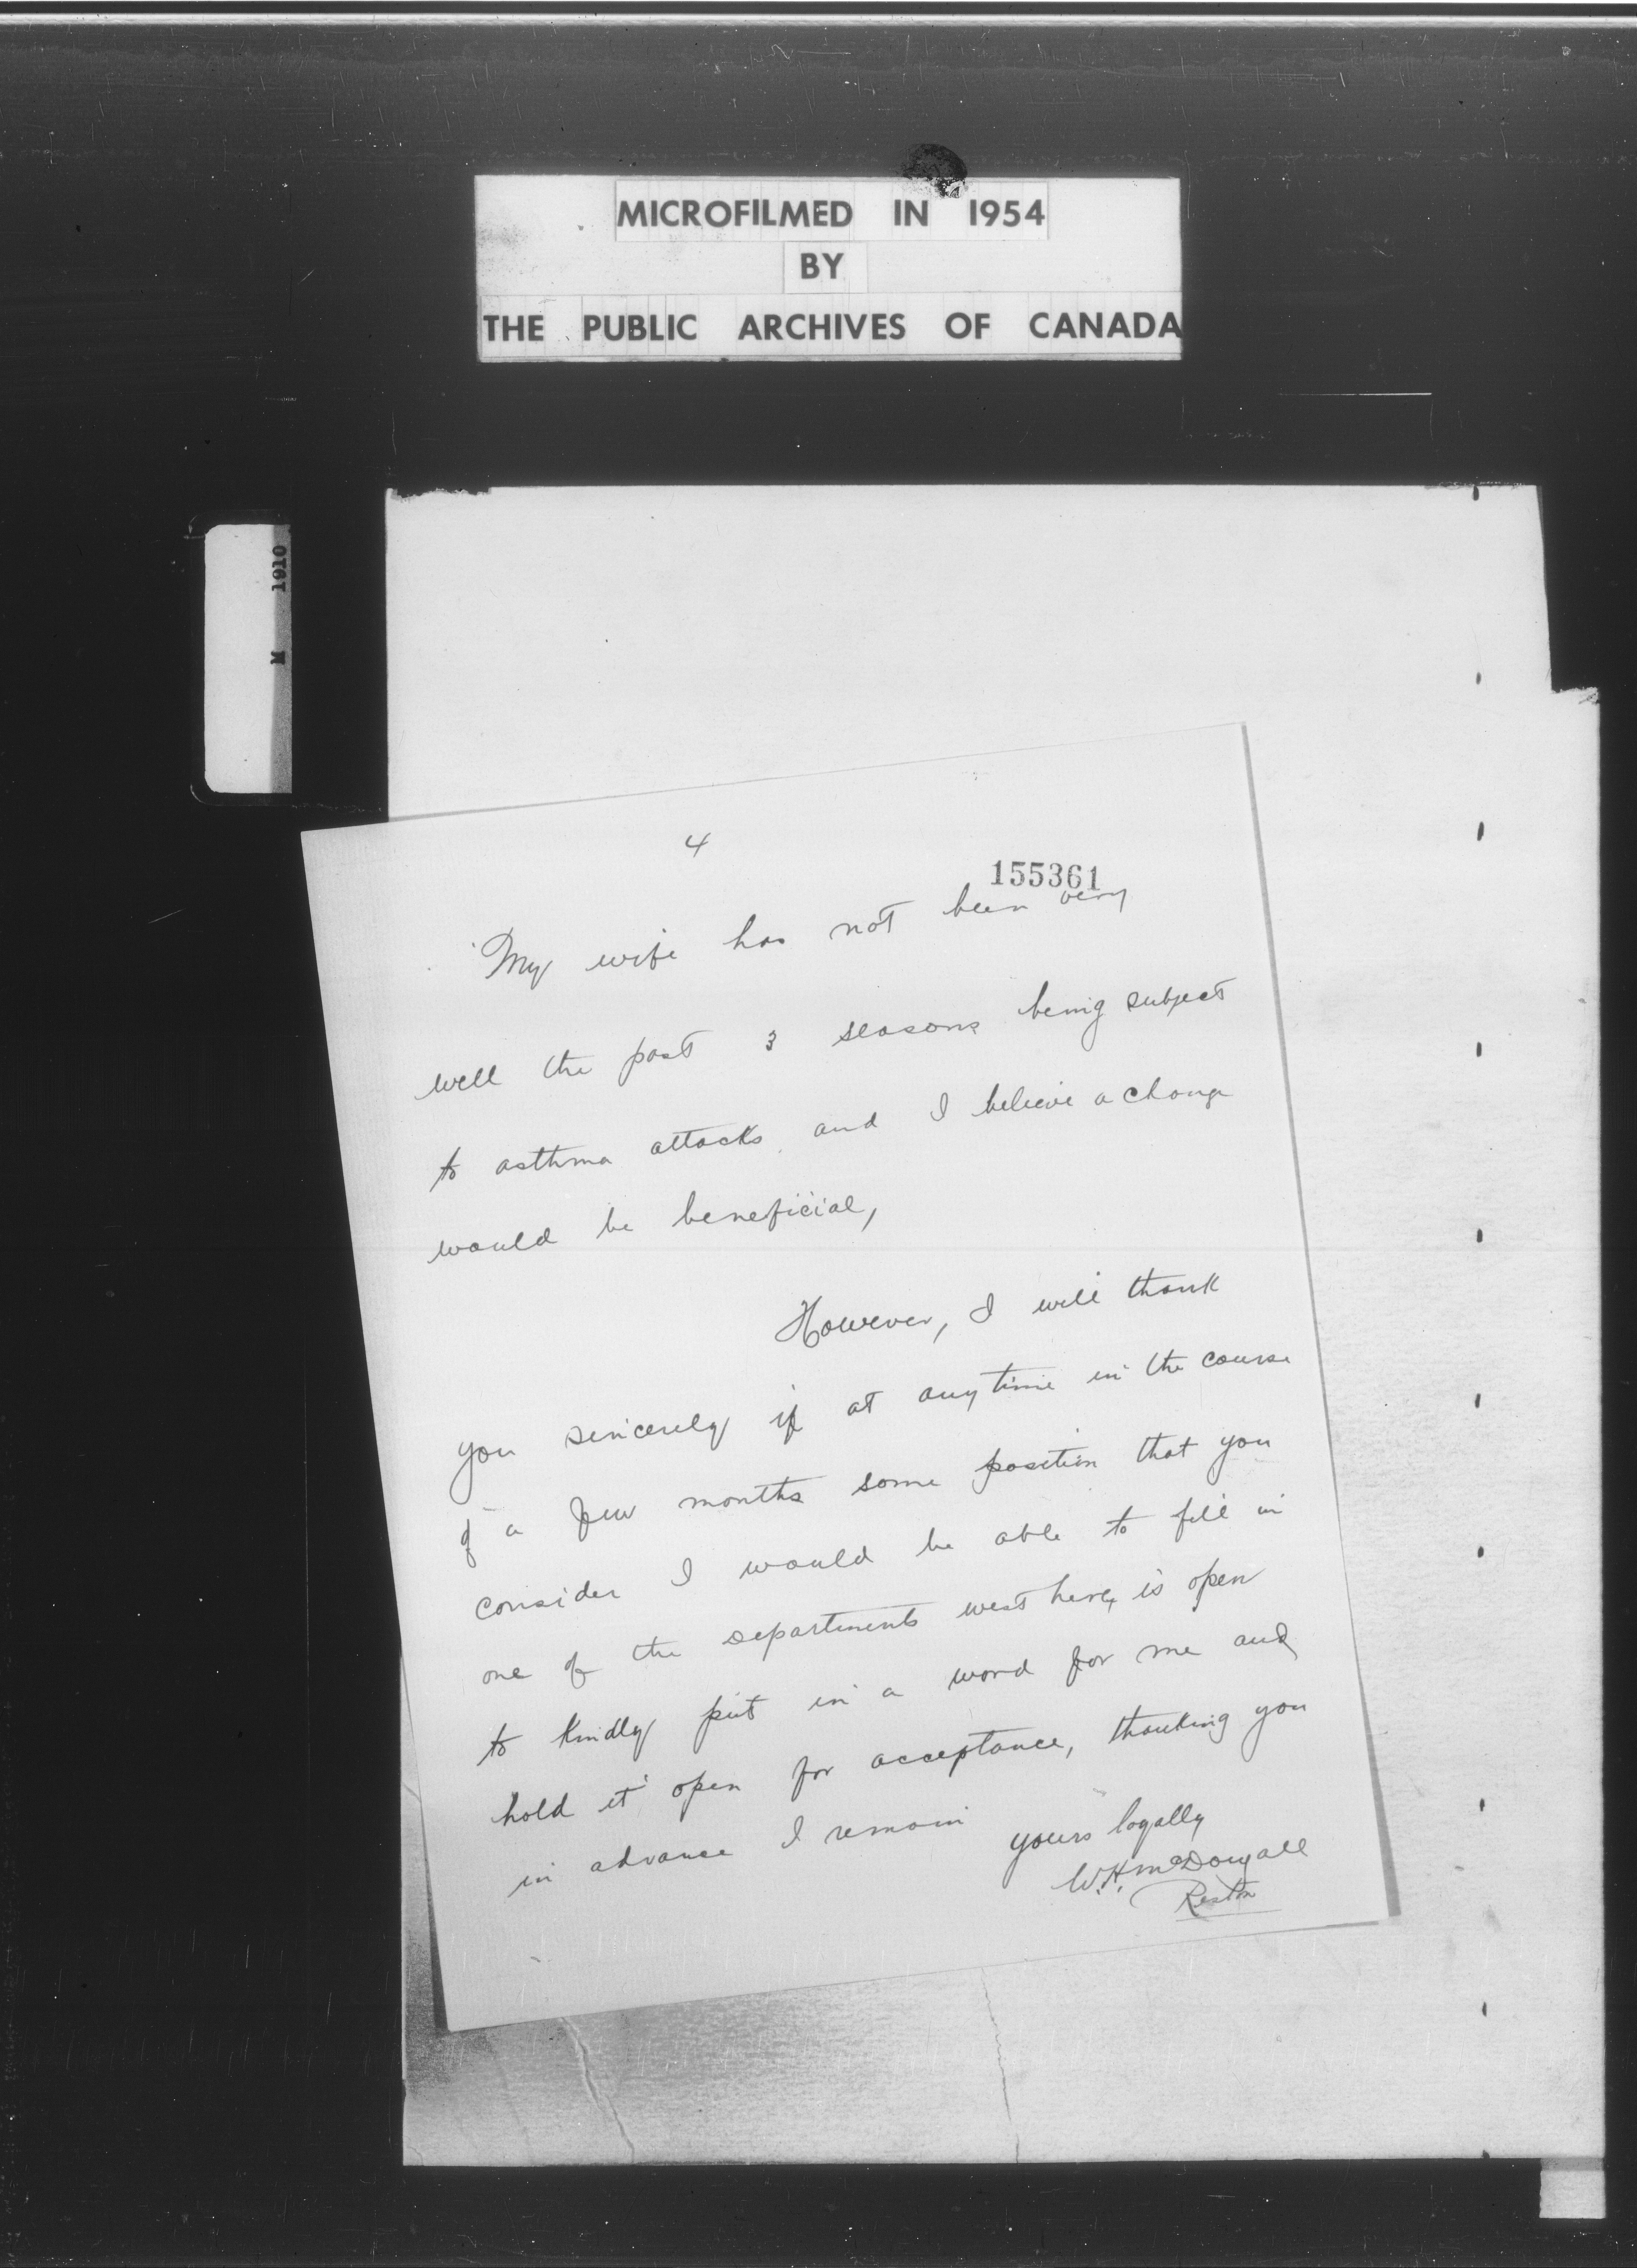 MICROFILMED IN 1954
BY
THE PUBLIC ARCHIVES OF CANADA
M 1910
4
155361
My wife has not been very
well the past 3 seasons being subject
to asthma attacks and I believe a change
would be beneficial,
However, I will thank
you sincerely if at any time in the course
of a few months some position that you
consider I would be able to fill in
one of the departments west here, is open
to kindly put in a word for me and
hold it open for acceptance, thanking you
in advance I remain
yours loyally
W.H. McDougall
Reston